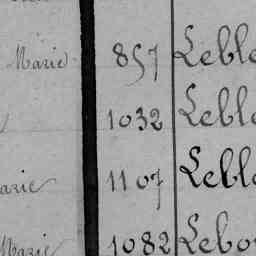 Marie 857 Leble
1032 Leble
arie 1107 Leble
Marie 1082 Lebo